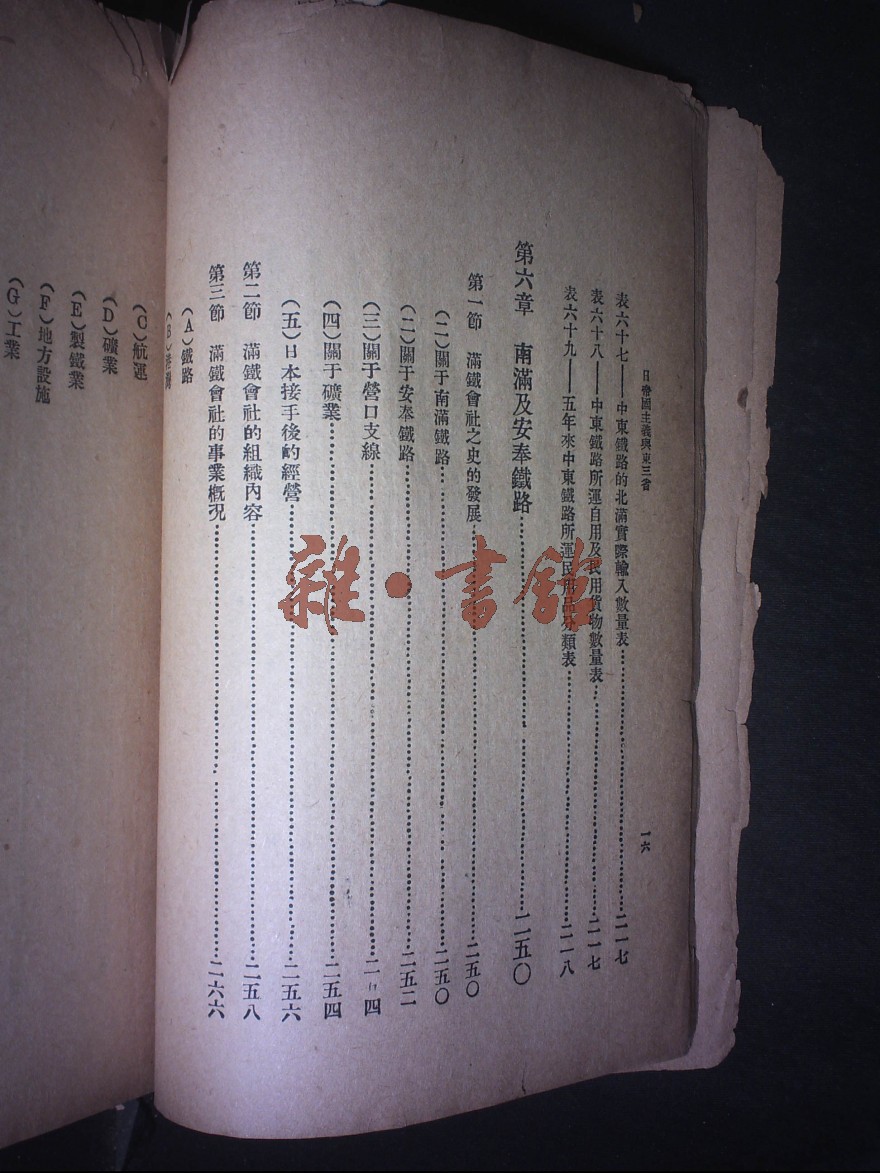 日帝國主義與東三省
一六
表六十七——中東鐵路的北滿實際輸入數量表……二一七
表六十八——中東鐵路所運自用及民用貨物數量表……二一七
表六十九——五年來中東鐵路所運民用品分類表……二一八
第六章 南滿及安奉鐵路……二五〇
第一節 滿鐵會社之史的發展……二五〇
(二)關于南滿鐵路……二五〇
(二)關于安奉鐵路……二五二
(三)關于營口支線……二 四
(四)關于礦業……二五四
(五)日本接手後的經營……二五六
第二節 滿鐵會社的組織內容……二五八
第三節 滿鐵會社的事業概況……二六六
(A)鐵路
(B)港灣
(C)航運
(D)礦業
(E)製鐵業
(F)地方設施
(G)工業
雜·書館